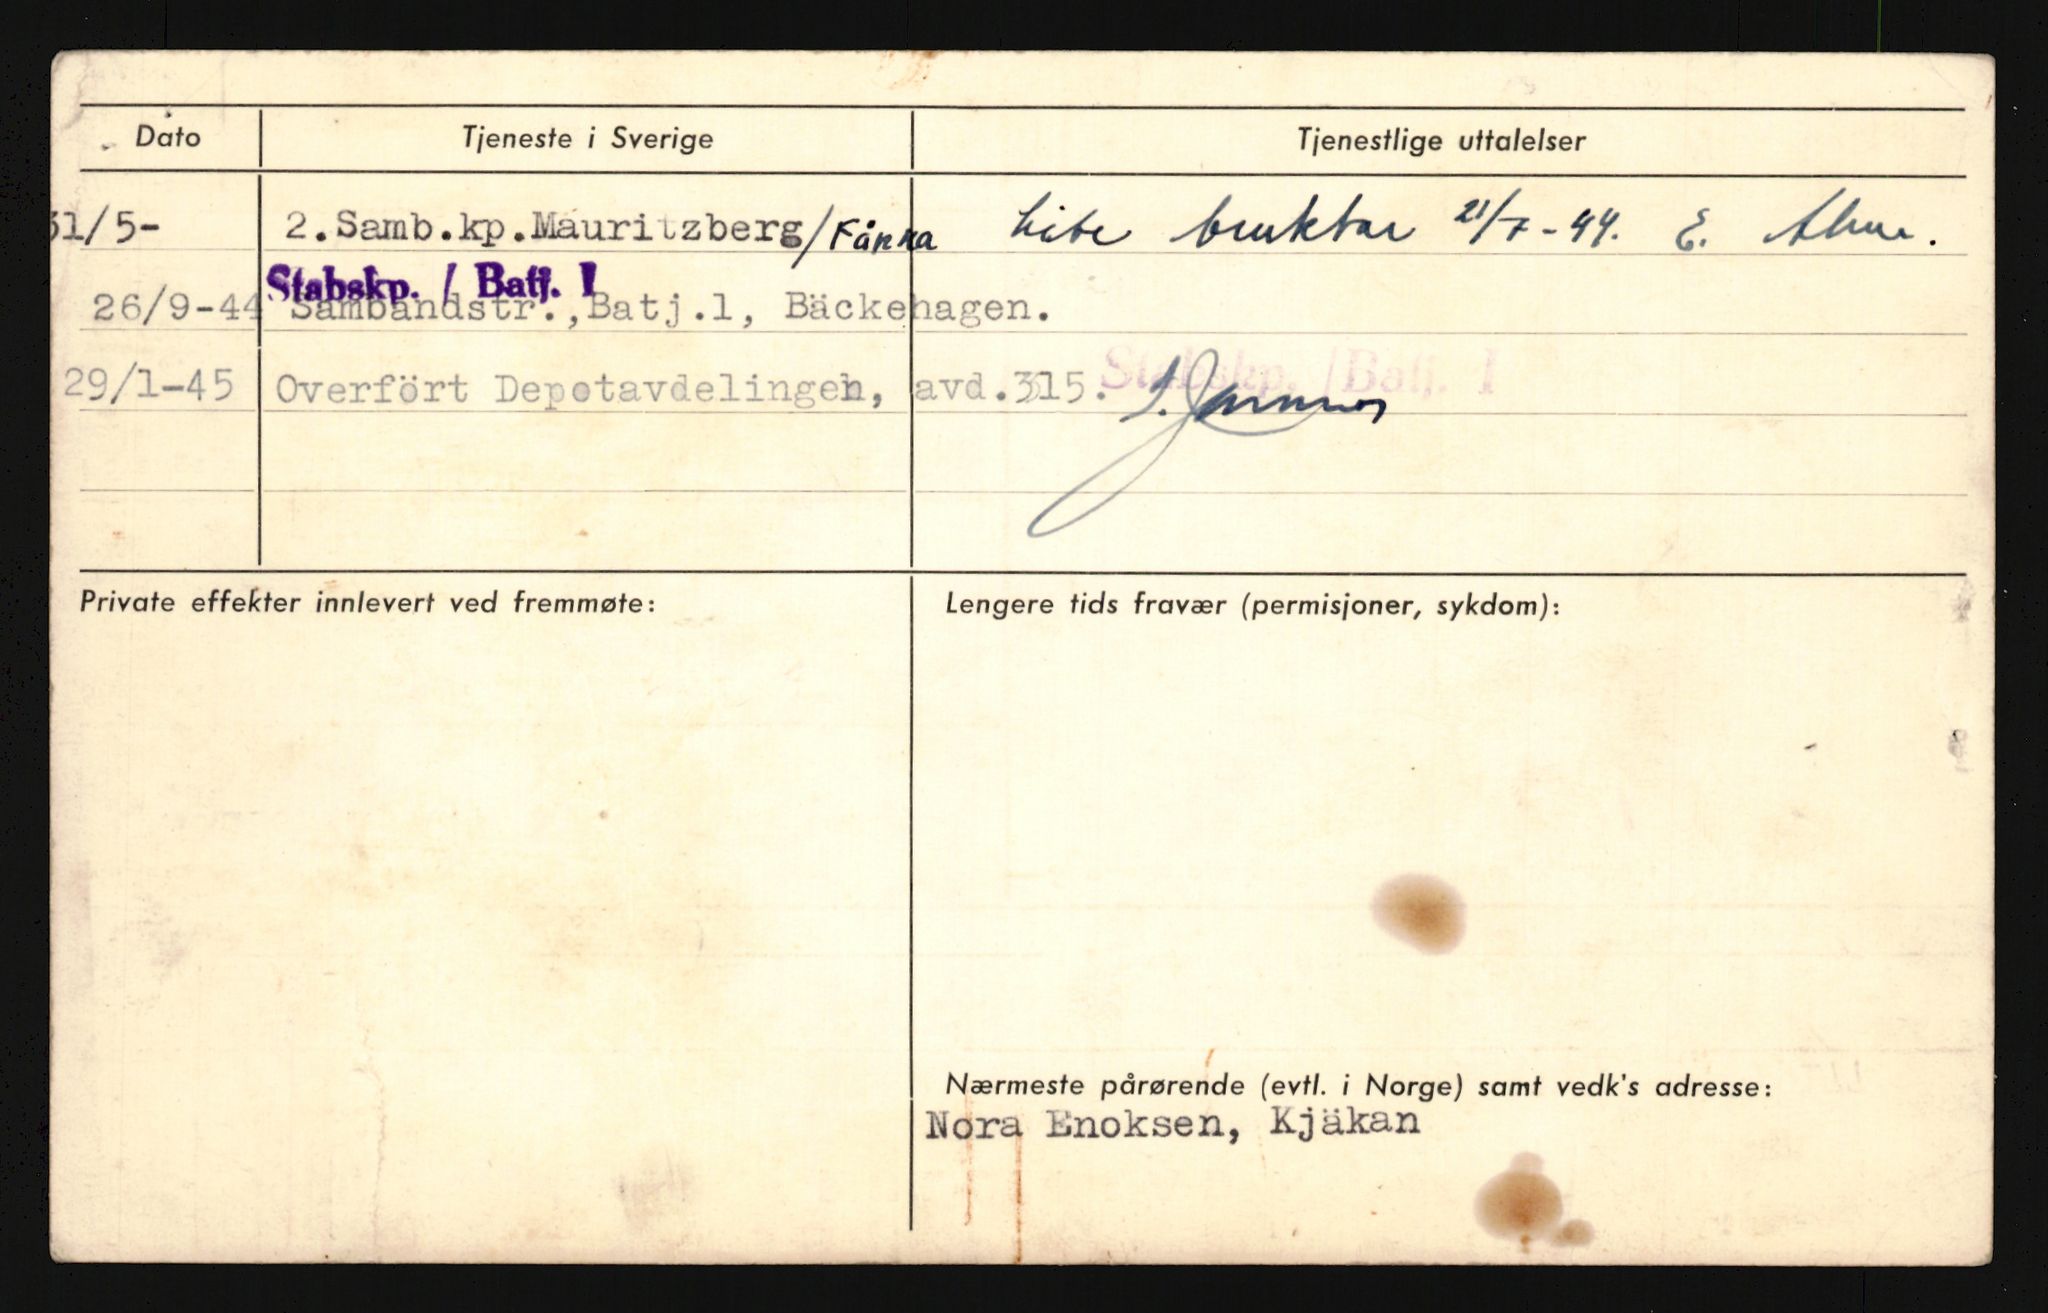 Dato Tjeneste i Sverige Tjenestlige uttalelser
31/5- 2.Samb.kp.Mauritzberg/Fånna Lite brukbar 21/7-44. E.
Stabskp. / Batj. I
26/9-44 Sambandstr.,Batj.1, Bäckehagen.
Stabskp. /Batj. I
29/1-45 Overfört Depotavdelingen, avd.315.
Private effekter innlevert ved fremmøte: Lengere tids fravær (permisjoner, sykdom):
Nærmeste pårørende (evtl. i Norge) samt vedk's adresse:
Nora Enoksen, Kjäkan